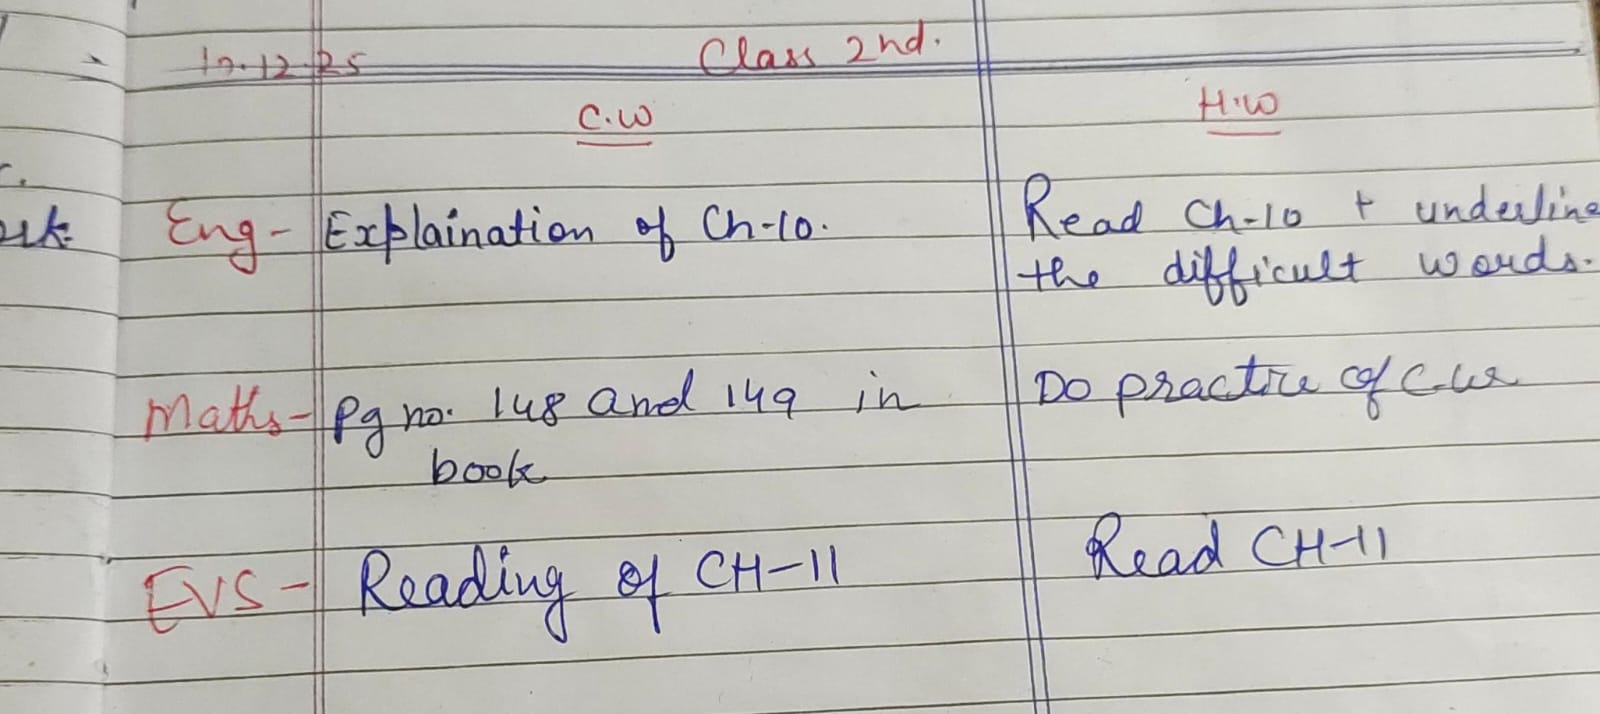 17.12.25 Class 2nd.
C.W H.W
Eng- Explaination of Ch-10. Read Ch-10 + underline
the difficult words.
Maths- Pg no. 148 and 149 in Do practice of C.W
book
EVS- Reading of CH-11 Read CH-11